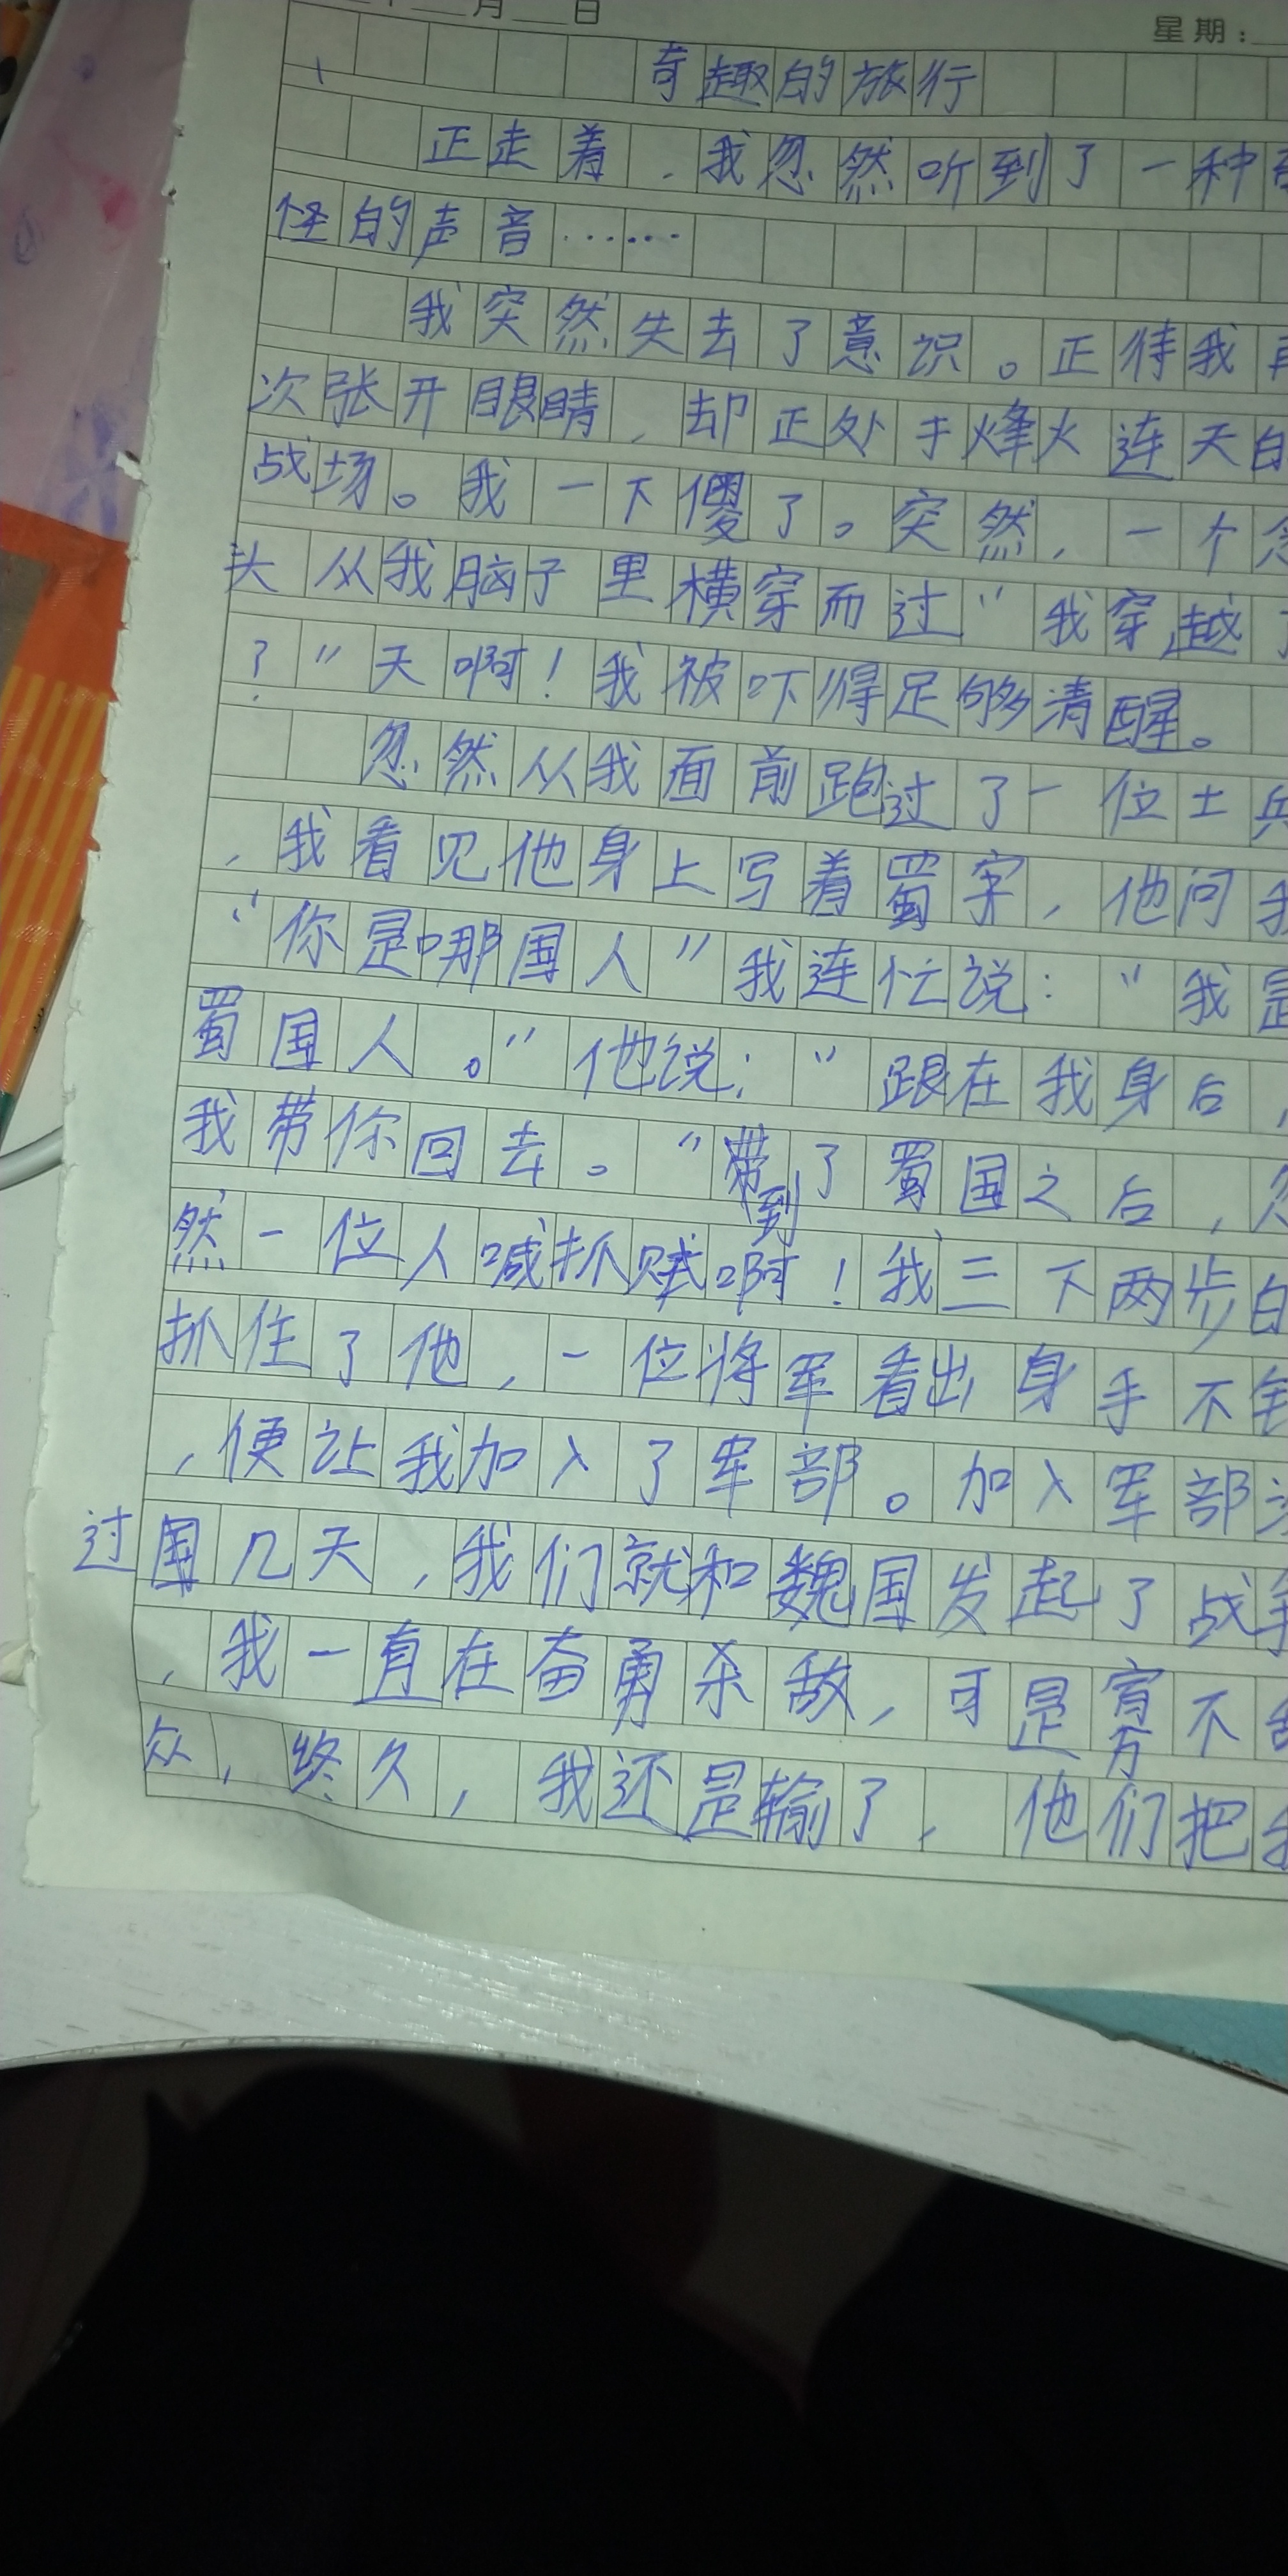 月 日
星期:
奇趣的旅行
正走着,我忽然听到了一种
怪的声音……
我突然失去了意识。正待我
次张开眼睛,却正处于烽火连天的
战场。我一下傻了。突然,一个念
头从我脑子里横穿而过“我穿越了
?”天啊!我被吓得足够清醒。
忽然从我面前跑过了一位士兵
,我看见他身上写着蜀字,他问我
“你是哪国人”我连忙说:“我是
蜀国人。”他说:“跟在我身后,
我带你回去。”带到了蜀国之后,忽
然一位人喊抓贼啊!我三下两步的
抓住了他,一位将军看出身手不错
,便让我加入了军部。加入军部没
过几天,我们就和魏国发起了战争
,我一直在奋勇杀敌,可是寡不敌
众,终久,我还是输了,他们把我